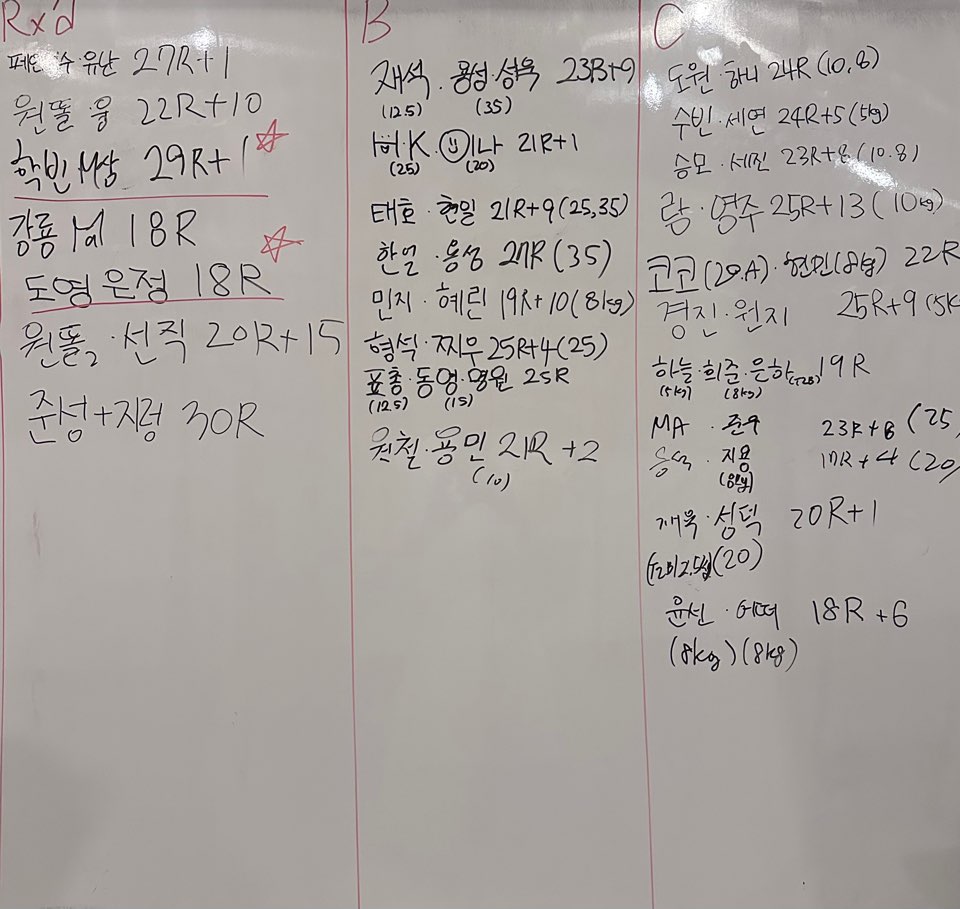 Rx'd
유난 27R+1
원똘 융 22R+10
학빈 M상 29R+1
강룡 님 18R
도영 은정 18R
원똘2 · 선직 20R+15
준성+지령 30R
B
재석 · 용성 · 성욱 23R+9
(12.5) (35)
허·K. 이나 21R+1
(25) (20)
태호 · 현일 21R+9(25,35)
한얼 · 용성 27R (35)
민지 · 혜린 19R+10(8kg)
형석 · 찌우 25R+4(25)
표총 · 동영 · 영원 25R
(12.5) (15)
원철 · 용민 21R +2
(10)
C
도원 · 하니 24R(10,8)
수빈 · 세연 24R+5(5kg)
승모 · 세진 23R+8(10.8)
람 · 영주 25R+13(10kg)
코코(20.A) · 현민(8kg) 22R
경진 · 원지 25R+9(5K
하늘 · 희준 · 은하 19R
(5kg) (8kg)
MA · 준우 23R+8 (25,
승석 · 지용 17R+4 (20
(8kg)
재욱 · 성덕 20R+1
(20)
윤신 · 에떠 18R+6
(8kg)(8kg)